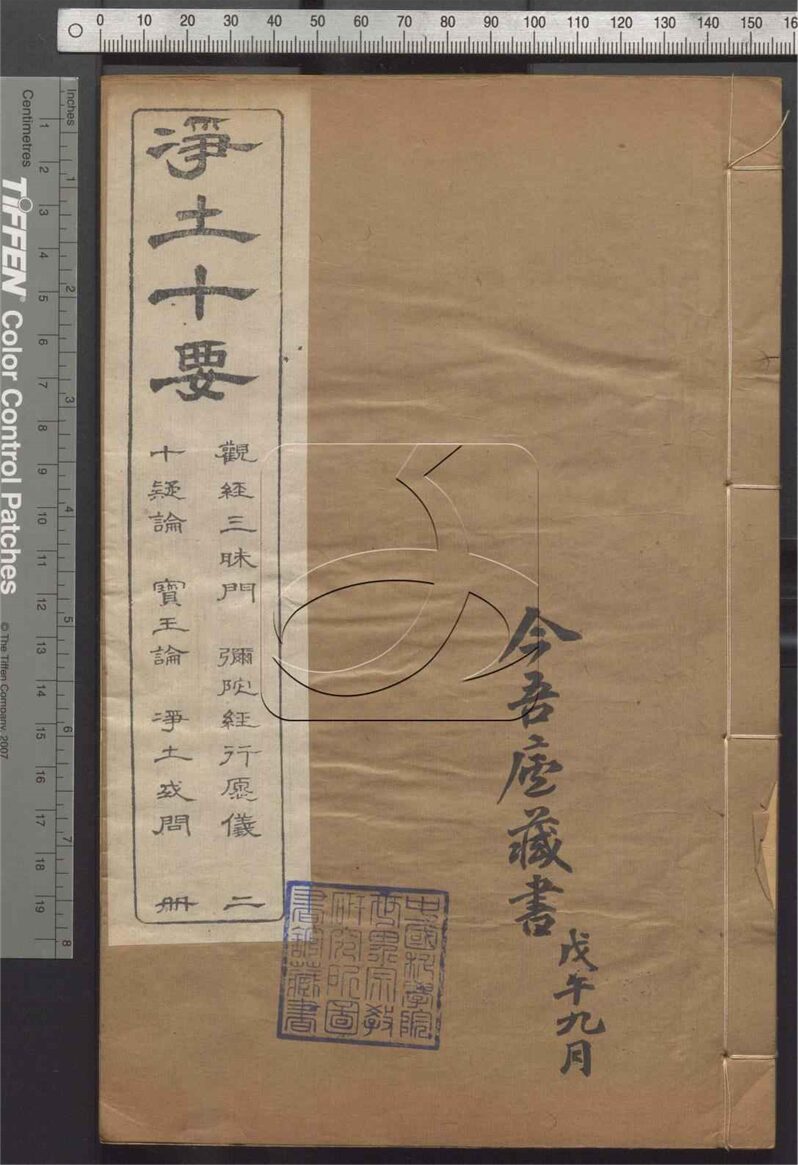 0 10 20 30 40 50 60 70 80 90 100 110 120 130 140 150 16
Inches
1 2 3 4 5 6 7 8
Centimetres
1 2 3 4 5 6 7 8 9 10 11 12 13 14 15 16 17 18 19
TIFFEN® Color Control Patches
© The Tiffen Company, 2007
淨土十要
觀經三昧門 彌陀經行愿儀 二
十疑論 寶王論 淨土或問 册
今吾廬藏書
戊午九月
中國科學院
世界宗教
研究所圖
書館藏書